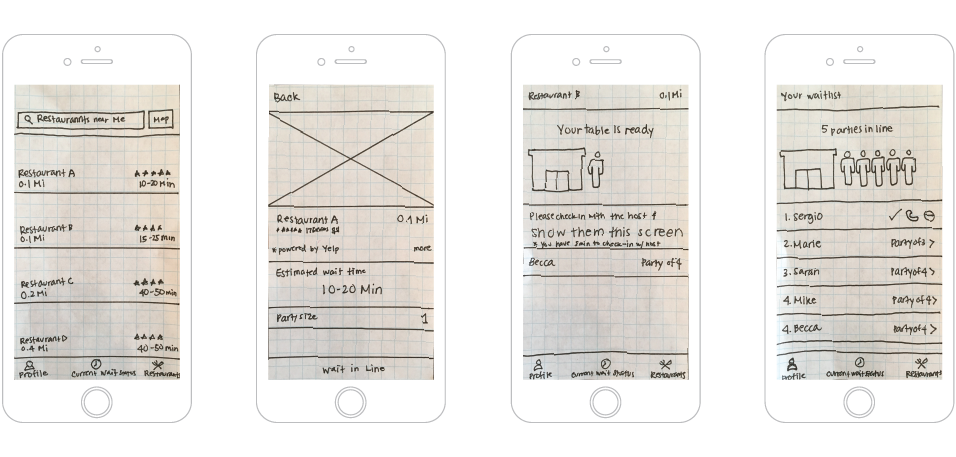 Restaurants near Me
Map
Restaurant A
0.1 Mi
10-20 Min
Restaurant B
0.1 Mi
15-25 min
Restaurant C
0.2 Mi
40-50 min
Restaurant D
0.4 Mi
40-50 min
Profile
Current Wait Status
Restaurants
Back
Restaurant A
0.1 Mi
* powered by Yelp
more
Estimated wait time
10-20 Min
Party size
1
Wait in Line
Restaurant B
0.1 Mi
Your table is ready
Please check-in with the host &
Show them this screen
* you have 5 min to check-in w/ host
Becca
Party of 4
Profile
Current Wait Status
Restaurants
Your waitlist
5 parties in line
1. Sergio
2. Marie
Party of 3 >
3. Saran
Party of 4 >
4. Mike
Party of 4 >
4. Becca
Party of 4 >
Profile
Current wait status
Restaurants